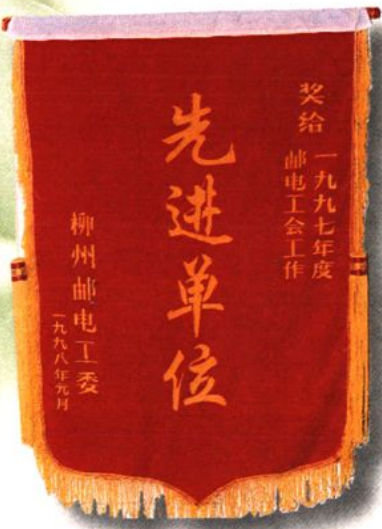 奖给
一九九七年度
邮电工会工作
先进单位
柳州邮电工委
一九九八年元月